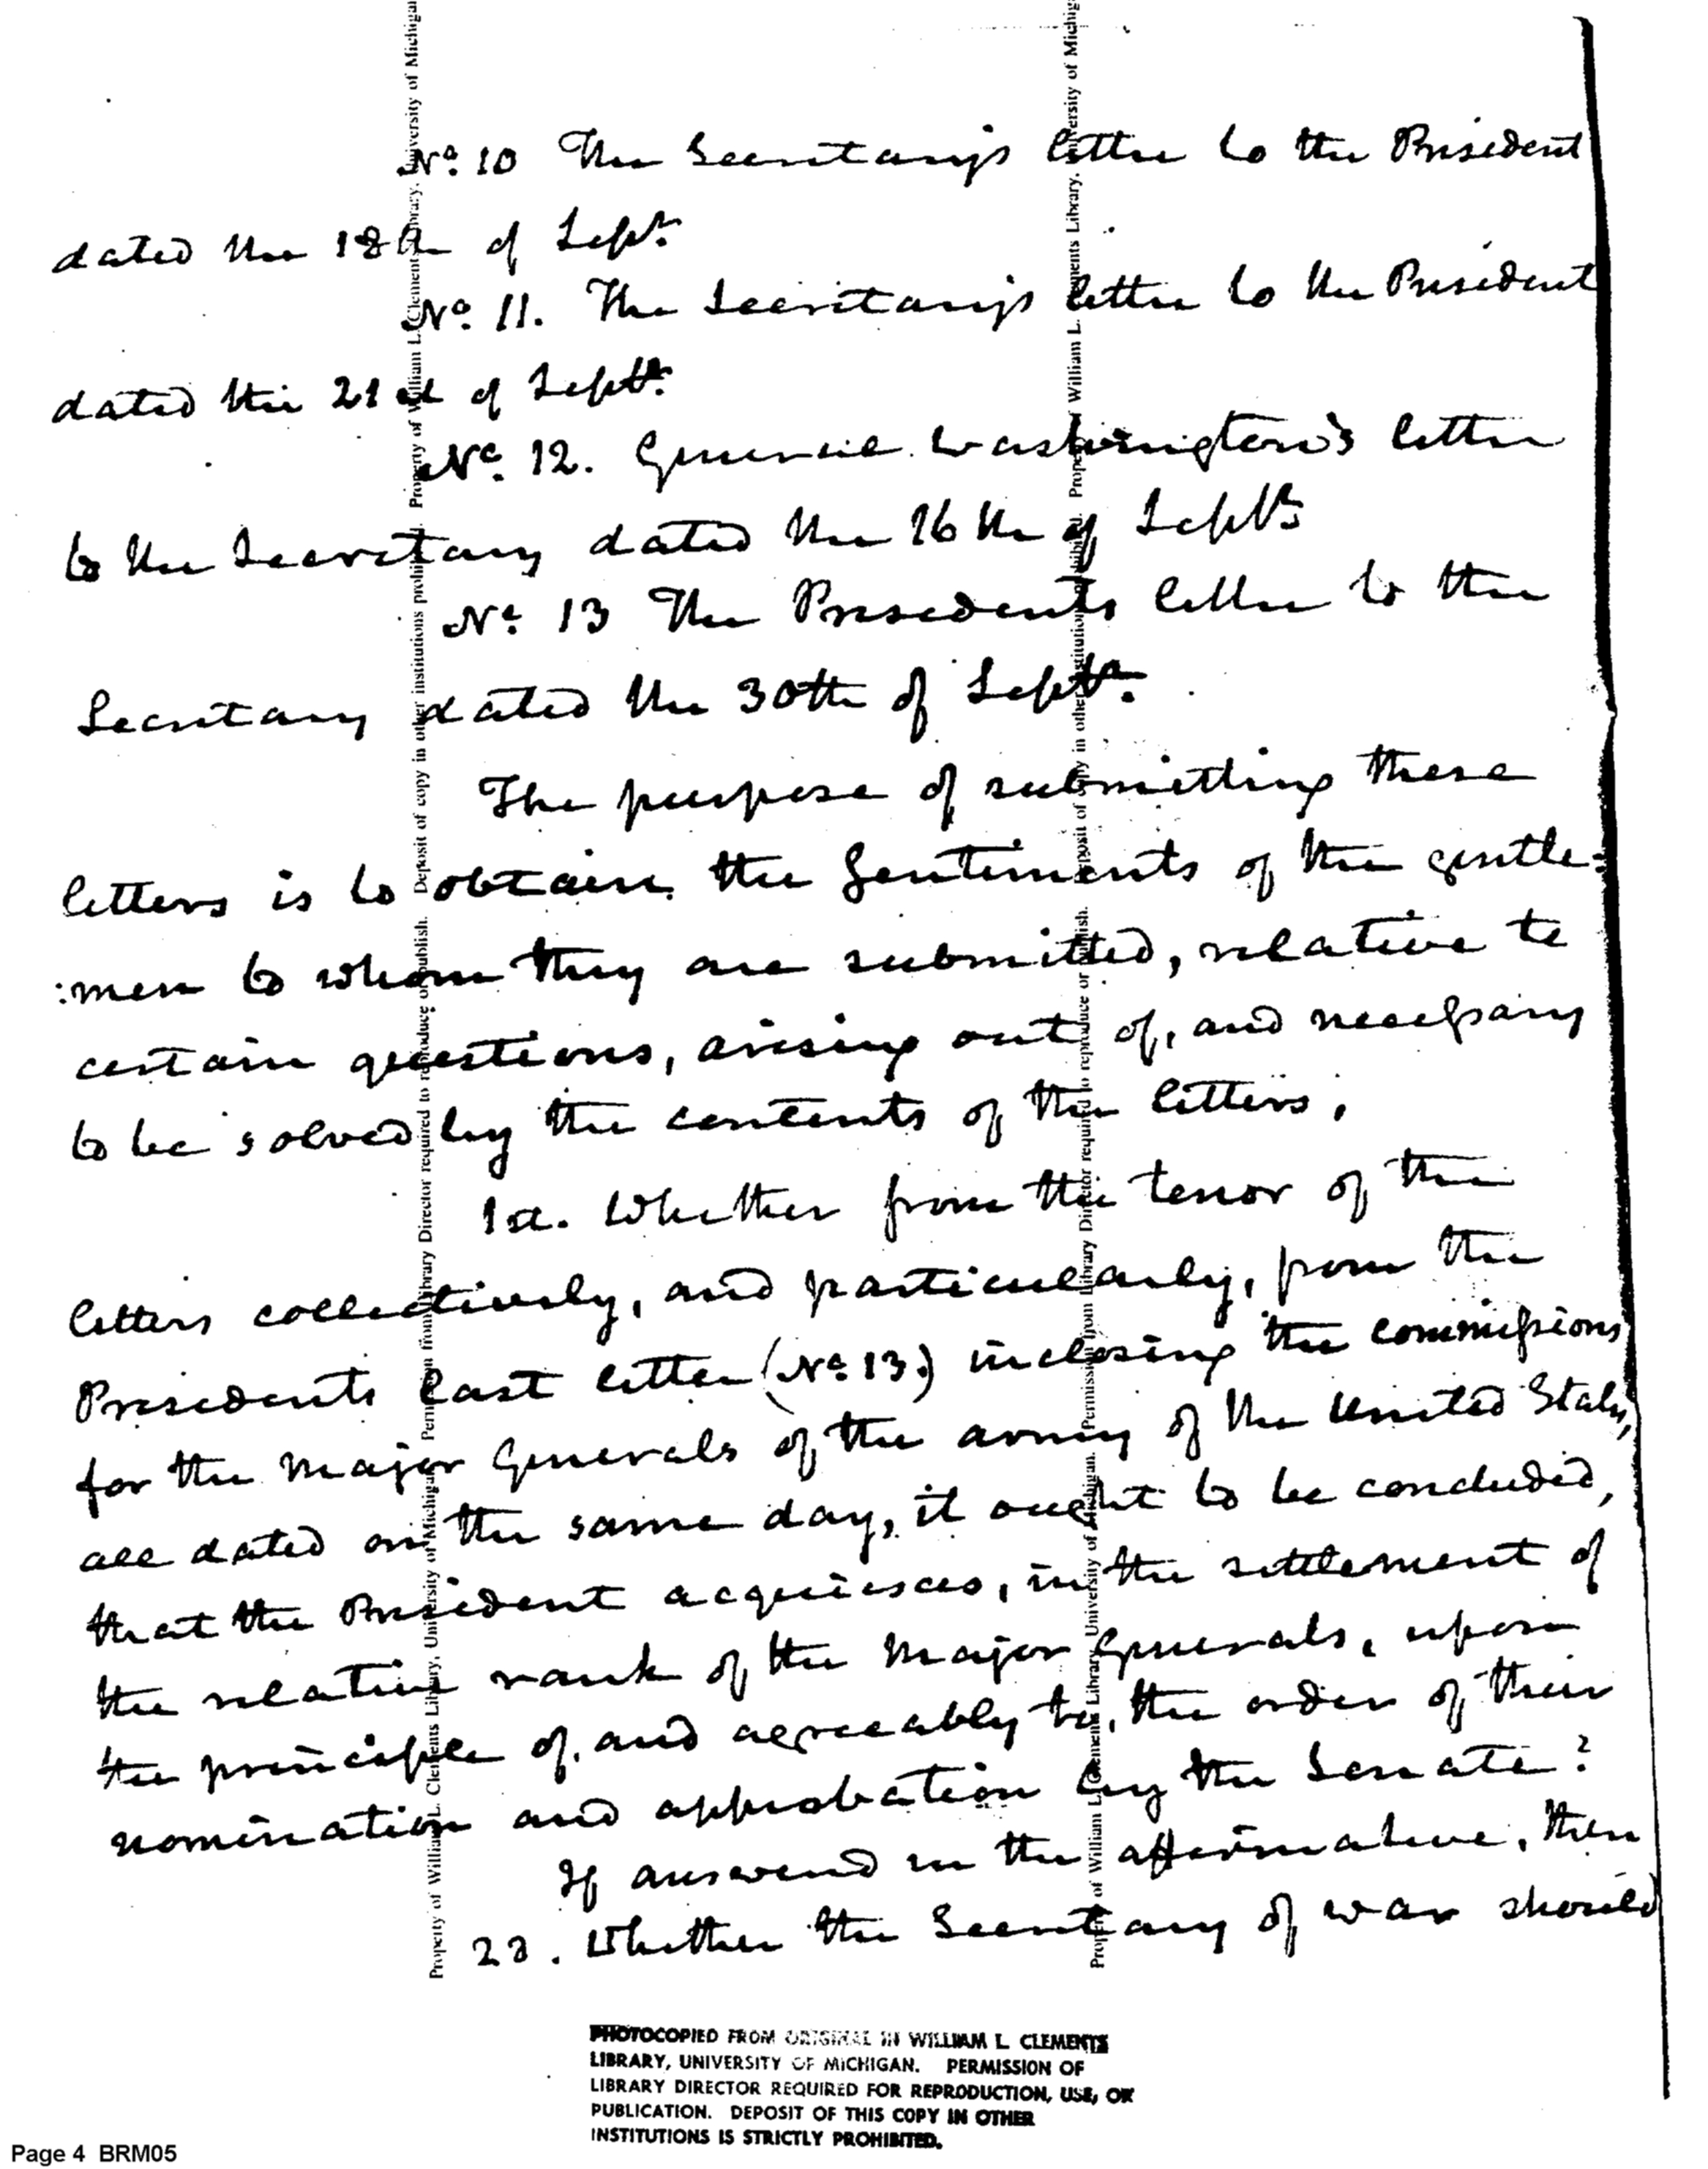 No. 10 The Secretary's letter to the President
dated the 18th of Sept.
No. 11. The Secretary's letter to the President
dated the 21st of Septr.
No. 12. General Washington's letter
to the Secretary dated the 16th of Septr.
No. 13 The Presidents letter to the
Secretary dated the 30th of Septr.
The purpose of submitting these
letters is to obtain the Sentiments of the gentle=
:men to whom they are submitted, relative to
certain questions, arising out of, and necessary
to be solved by the contents of the letters,
1st. Whether from the tenor of the
letters collectively, and particularly, from the
Presidents last letter (No. 13.) inclosing the commissions
for the Major Generals of the army of the United States,
all dated on the same day, it ought to be concluded,
that the President acquiesces, in the settlement of
the relative rank of the Major Generals, upon
the principle of, and agreeably to, the order of their
nomination and approbation by the Senate?
If answered in the affirmative, then
2d. Whether the Secretary of war should
Property of William L. Clements Library, University of Michigan. Permission from Library Director required to reproduce or publish. Deposit of copy in other institutions prohibited. Property of William L. Clements Library, University of Michigan
Property of William L. Clements Library, University of Michigan. Permission from Library Director required to reproduce or publish. Deposit of copy in other institutions prohibited. Property of William L. Clements Library, University of Michigan
PHOTOCOPIED FROM ORIGINAL IN WILLIAM L. CLEMENTS
LIBRARY, UNIVERSITY OF MICHIGAN. PERMISSION OF
LIBRARY DIRECTOR REQUIRED FOR REPRODUCTION, USE, OR
PUBLICATION. DEPOSIT OF THIS COPY IN OTHER
INSTITUTIONS IS STRICTLY PROHIBITED.
Page 4 BRM05